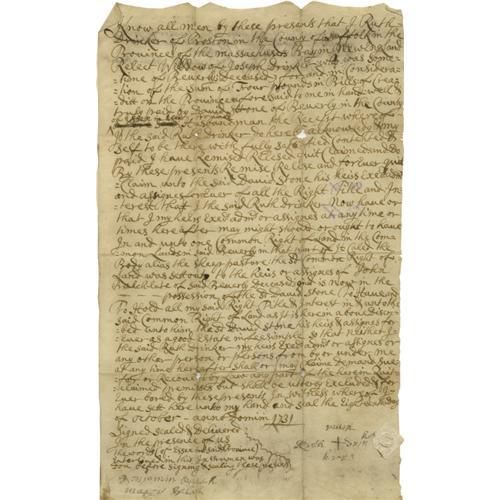 Know all men by these presents that I Ruth
Drinker of Boston in the County of Suffolk in the
Province of the Massachusets Bay in New England
Relect Widdow of Joseph Drinker who was some-
-time of Beverly deceased for and in Considera-
-tion of the Sum of Four pounds in Bills of Cre-
-ditt on the Province aforesaid to me in hand well &
truly paid by David Stone of Beverly in the County
of Essex
man the Receipt whereof
I the said Ruth Drinker do hereby acknowledg my
Self to be therewith fully satisfied Contented &
paid I have Remised Relesed quit Claimed and do
By these presents Remise Relese and forever quit
Claim unto the said David Stone his heirs Executors
and assignes forever of all the Right Title and In-
-terest that I the said Ruth Drinker Now have or
that I my heirs Executors or assignes at any time or
times hereafter may might should or ought to have
In and unto one Common Right of Land in the Com-
-mon Land in said Beverly in that part of it Called the
Body alias the sheep pasture the sd Common Right of
Land was sett out to the heirs or assignes of John
of said Beverly deceased and is now in the
possession of the sd David Stone To Have and
To Hold all my said Right Title and Interest in & unto the
said Common Right of Land as it is herein above discri-
-bed unto him the sd David Stone his heirs & assignes for
ever as a good Estate in Fee simple so that neither I
the said Ruth Drinker my heirs Executors or assignes or
any other person or persons from by or under me
at any time hereafter shall or may Claime demand sue
for or Recover any part of the herein
claimed premises but shall be utterly Excluded & for
Ever bared by these presents In witness whereof I
have sett hereunto my hand and seal the Eight day
of October - anno Domini 1731
Signed sealed & delivered
In the presence of us
the words (of Essex
Interlined in this Instrument was
don before signing & sealing these presents
Benjamin
Ruth Drinker
her
mark